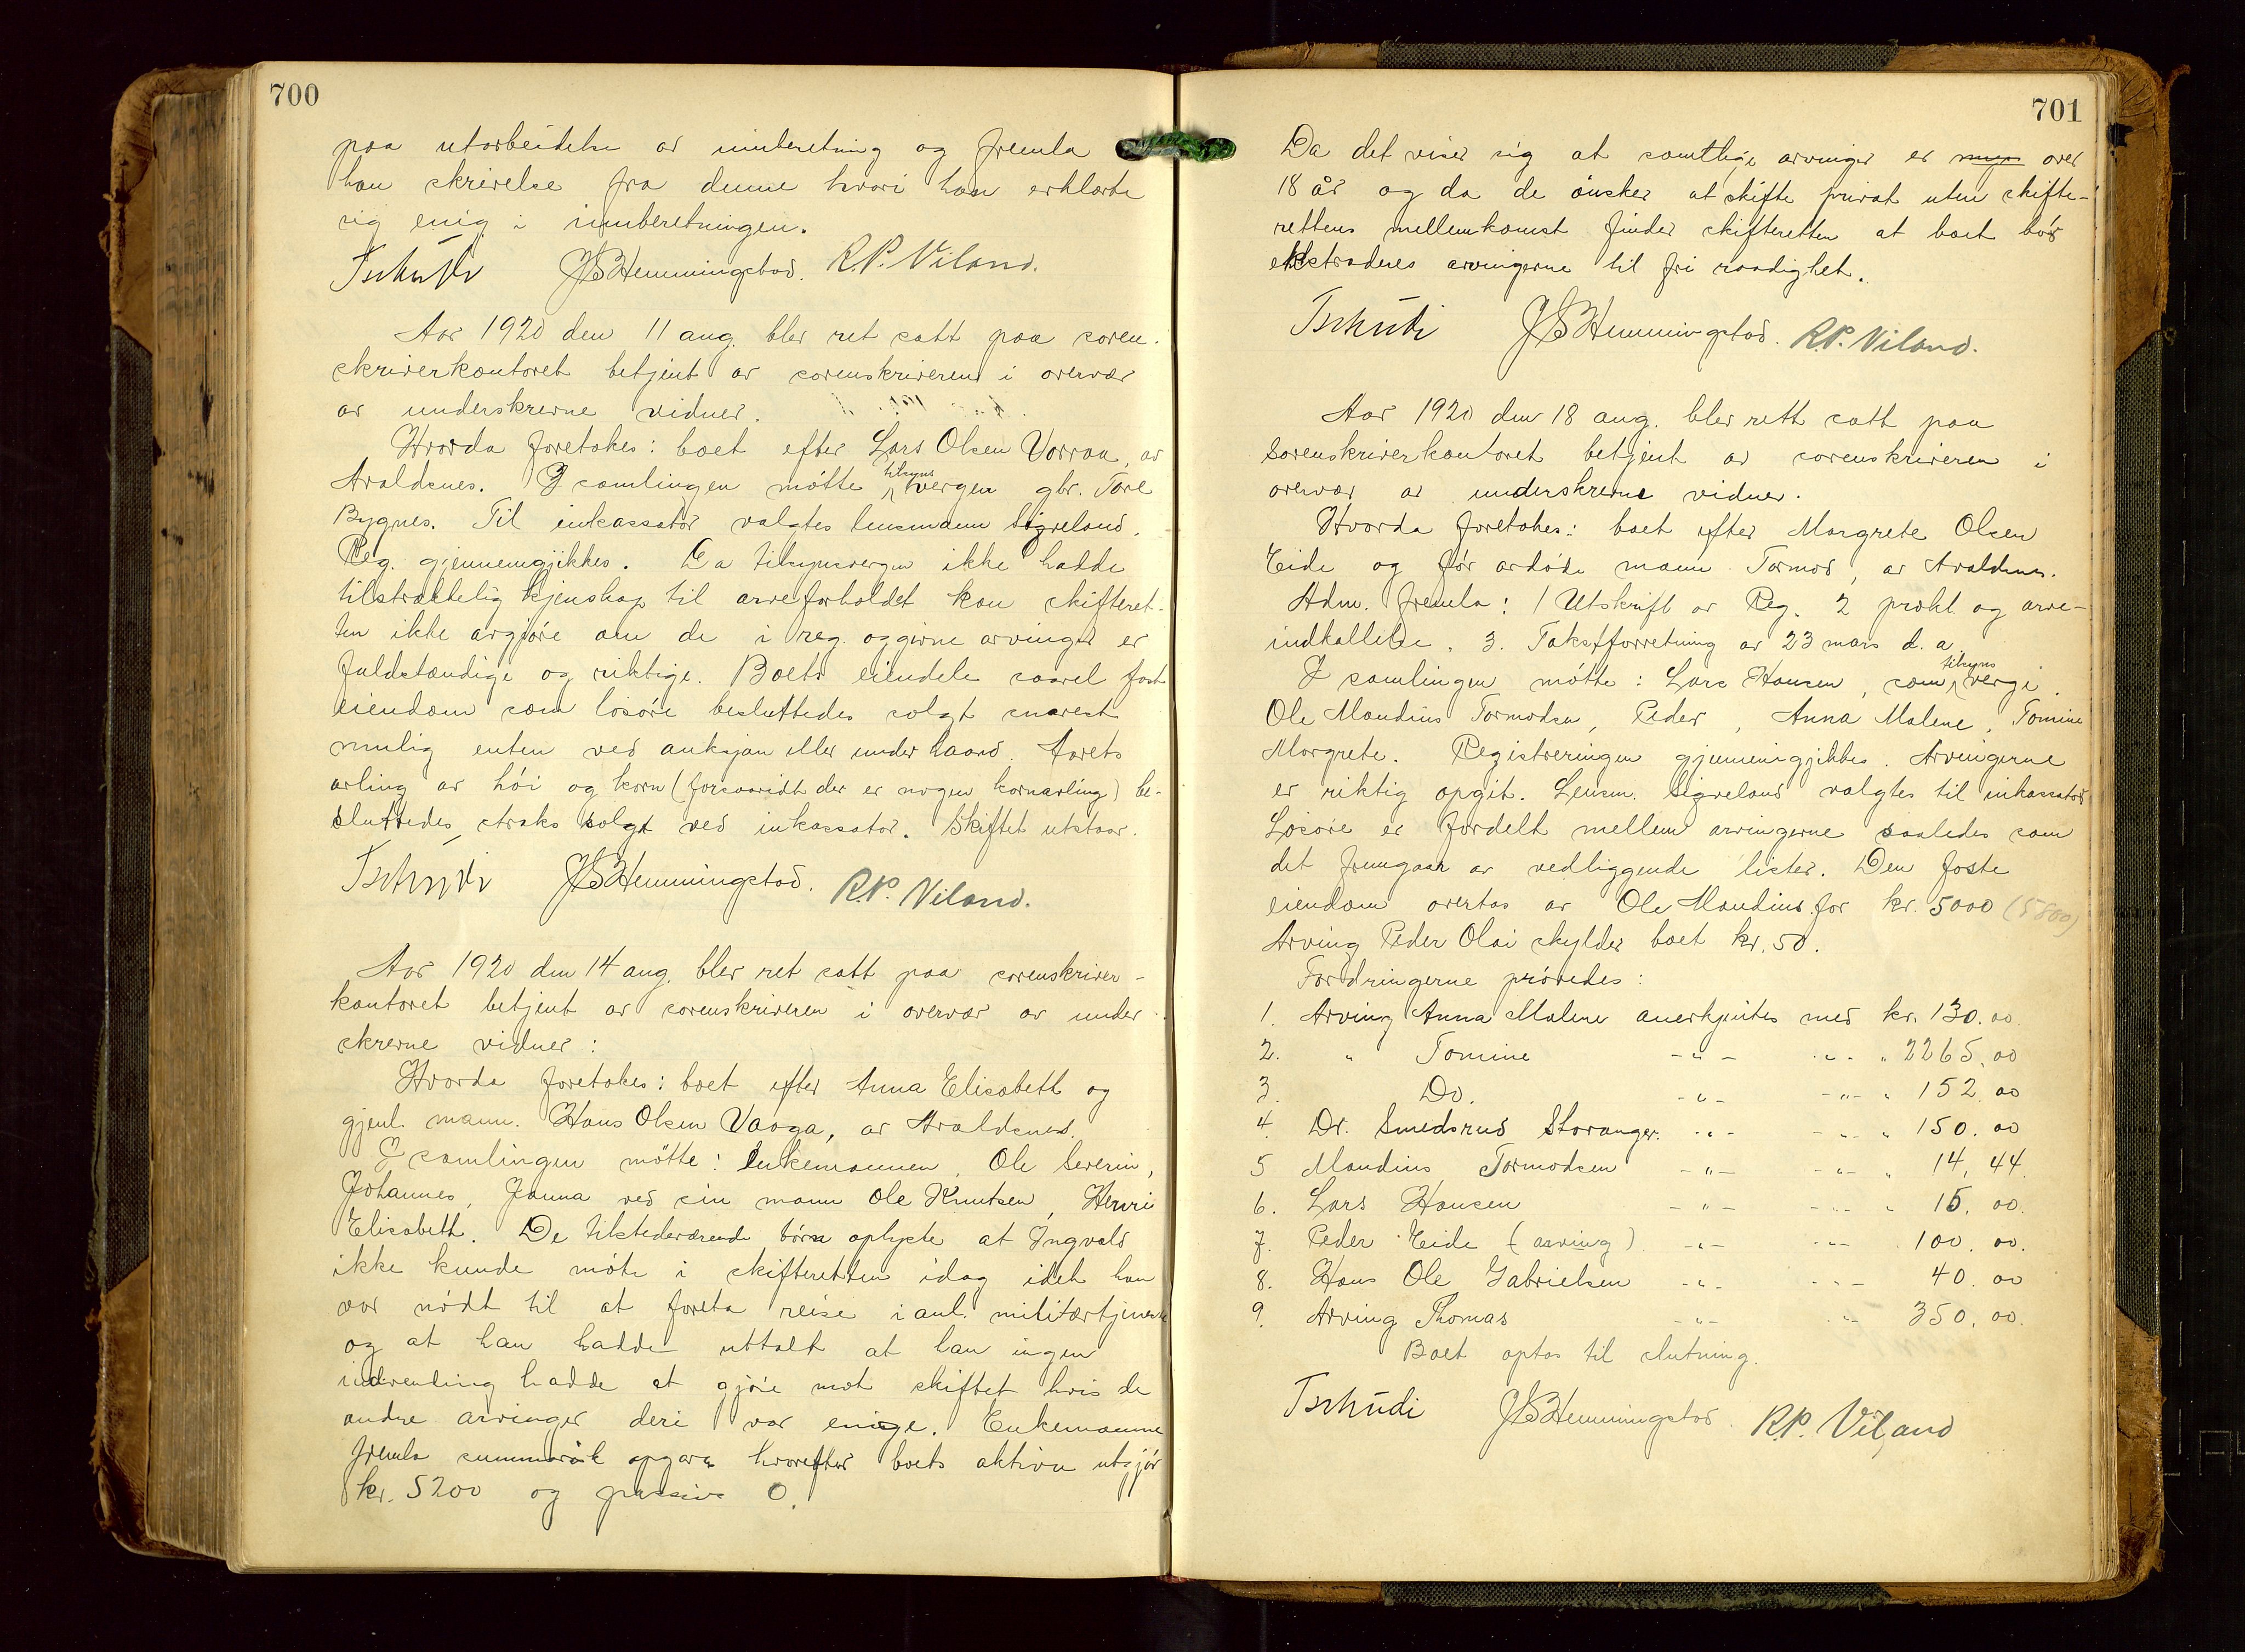 700
paa utarbeidelse av innberetning og fremla
han skrivelse fra denne hvori han erklærte
sig enig i innberetningen.
Tschudi JSHemmingstad. R.P. Viland.
Aar 1920 den 11 aug. blev ret satt paa soren-
skriverkontoret betjent av sorenskriveren i overvær
av underskrevne vidner.
Hvorda foretokes: boet efter Lars Olsen Vorraa, av
Avaldsnes. I samlingen møtte tilsyns vergen gbr. Tore
Bygnes. Til inkassator valgtes lensmann Sigveland.
Reg. gjennemgikkes. Da tilsynsvergen ikke hadde
tilstrækkelig kjenskap til arveforholdet kan skifteret-
ten ikke avgjøre om de i reg. opgivne arvinger er
fuldstændige og riktige. Boets eiendele saavel fast
eiendom som løsøre besluttedes solgt snarest
mulig enten ved auksjon eller under haand. Aarets
avling av høi og korn (forsaavidt der er nogen kornavling) be-
sluttedes straks solgt ved inkassator. Skiftet utstaar.
Tschudi JSHemmingstad. R.P. Viland.
Aar 1920 den 14 aug. blev ret satt paa sorenskriver-
kontoret betjent av sorenskriveren i overvær av under
skrevne vidner:
Hvorda foretokes: boet efter Anna Elisabett og
gjenl. mann. Hans Olsen Vaaga, av Avaldsnes.
I samlingen møtte: Enkemannen, Ole Severin,
Johannes, Janna ved sin mann Ole Knutsen, Henri
Elisabett. De tilstedeværende børn oplyste at Ingvald
ikke kunde møte i skifteretten idag idet han
var nødt til at foreta reise i anl. militærtjeneste
og at han hadde uttalt at han ingen
indvending hadde at gjøre mot skiftet hvis de
andre arvinger deri var enige. Enkemannen
fremla summarisk opgave hvorefter boets aktiva utgjør
kr. 5200 og passiva 0.
701
Da det viser sig at samtlige arvinger er myn over
18 år og da de ønsker at skifte privat uten skifte-
rettens mellemkomst finder skifteretten at boet bør
ekstraderes arvingerne til fri raadighet.
Tschudi JSHemmingstad. R.P. Viland.
Aar 1920 den 18 aug. blev rett satt paa
Sorenskriverkontoret betjent av sorenskriveren i
overvær av underskrevne vidner.
Hvorda foretokes: boet efter Margrete Olsen
Eide og før avdøde mann Tormod, av Avaldsnes.
Adm. fremla: 1 Utskrift av Reg. 2 prokl. og arve-
indkallelse. 3. Takstforretning av 23 mars d.a.
I samlingen møtte: Lars Hansen, som tilsyns verge.
Ole Mandius Tormodsen, Peder, Anna Malene, Tomine
Margrete. Registreringen gjennemgikkes. Arvingerne
er riktig opgit. Lensm. Sigveland valgtes til inkassator
Løsøre er fordelt mellem arvingerne saaledes som
det fremgaar av vedliggende lister. Den faste
eiendom overtas av Ole Mandius for kr. 5000 (5800)
Arving Peder Olai skylder boet kr. 50.
Fordringerne prøvedes:
1. Arving Anna Malene anerkjentes med kr. 130.00.
2. " Tomine -"- -"- " 2265.00
3. Do. -"- -"- " 152.00
4. Dr. Smedsrud Stavanger. -"- -"- " 150.00
5 Mandius Tormodsen -"- -"- " 14,44.
6. Lars Hansen -"- -"- " 15.00.
7. Peder Eide (arving) -"- -"- 100.00.
8. Hans Ole Gabrielsen -"- -"- 40.00
9. Arving Thomas -"- -"- 350.00.
Boet optas til slutning.
Tschudi JSHemmingstad. R.P. Viland